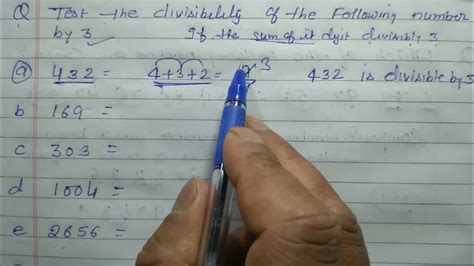 Q Test the divisibility of the following number
by 3 If the sum of it dgit divisibly 3
a 432 = 4+3+2= 3 432 is divisible by 3
b 169 =
c 303 =
d 1004 =
e 2656 =